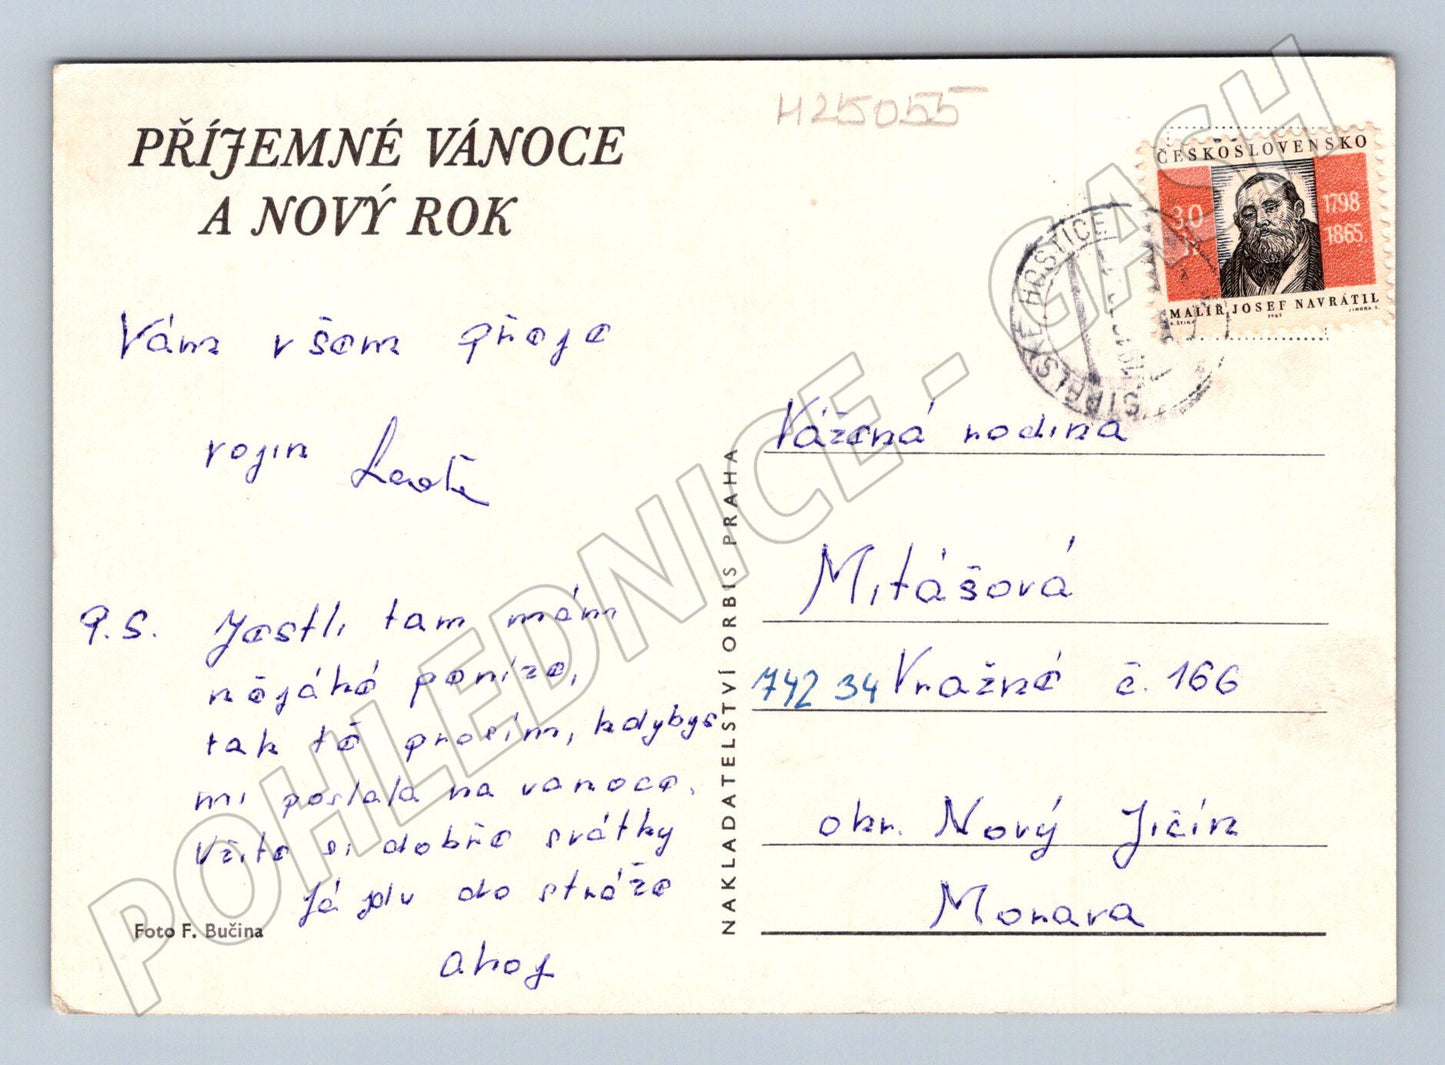 PŘÍJEMNÉ VÁNOCE
A NOVÝ ROK
Vám všem přeje
vojín
P.S. Jestli tam mám
nějáké peníze,
tak tě prosím, kdybys
mi poslala na vanoce.
Užite si dobře svátky
Já jdu do stráže
ahoj
Foto F. Bučina
NAKLADATELSTVÍ ORBIS PRAHA
H25055
ČESKOSLOVENSKO
30 h
1798
1865
MALÍŘ JOSEF NAVRÁTIL
STŘELSKÉ HOŠTICE
Vážená rodina
Mitášová
742 34 Vražné č. 166
okr. Nový Jičín
Morava
POHLEDNICE - GASH